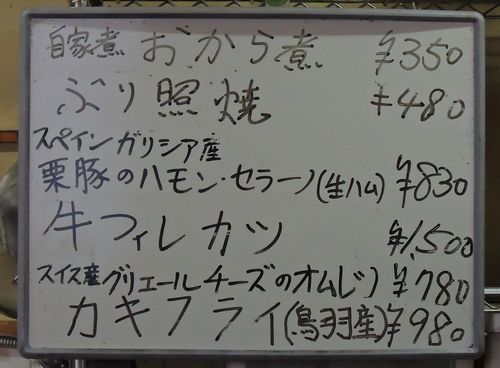 自家煮 おから煮 ¥350
ぶり照焼 ¥480
スペインガリシア産
栗豚のハモン・セラーノ(生ハム) ¥830
牛フィレカツ ¥1,500
スイス産グリエールチーズのオムレツ ¥780
カキフライ(鳥羽産) ¥980